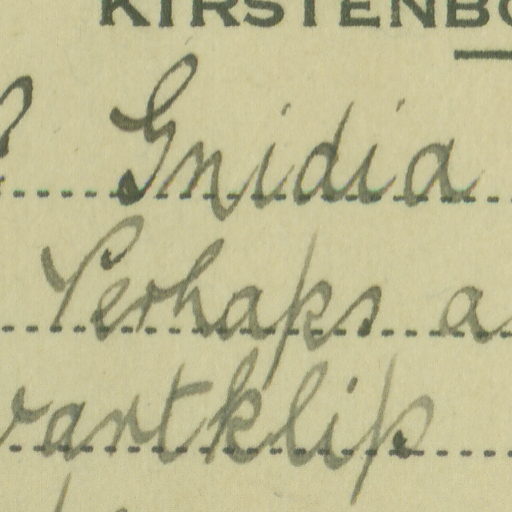 KIRSTENBO
? Gnidia
Perhaps a
vartklip